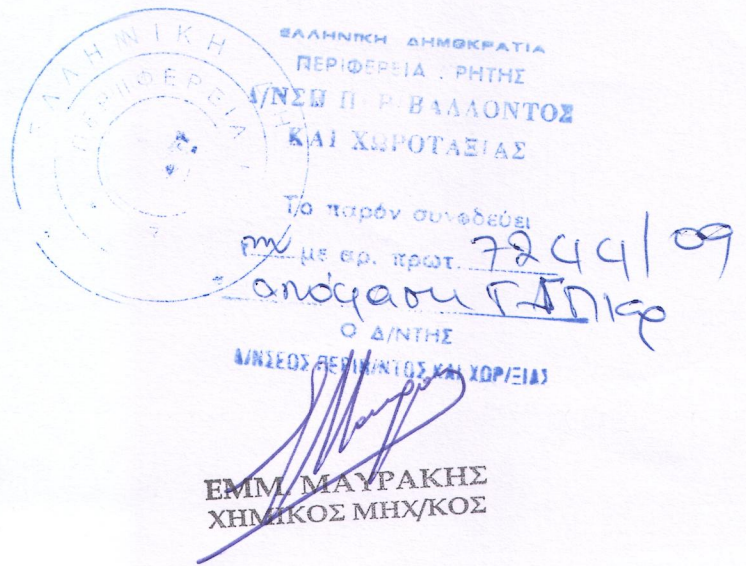 ΕΛΛΗΝΙΚΗ
ΠΕΡΙΦΕΡΕΙΑ
ΕΛΛΗΝΙΚΗ ΔΗΜΟΚΡΑΤΙΑ
ΠΕΡΙΦΕΡΕΙΑ ΡΗΤΗΣ
Δ/ΝΣΗ Π Ρ ΒΑΛΛΟΝΤΟΣ
ΚΑΙ ΧΩΡΟΤΑΞΙΑΣ
Το παρόν συνοδεύει
την με αρ. πρωτ. 7244/09
απόφαση ΓΔΠΚρ
Ο Δ/ΝΤΗΣ
Δ/ΝΣΕΩΣ ΠΕΡΙΒ/ΝΤΟΣ ΚΑΙ ΧΩΡ/ΞΙΑΣ
ΕΜΜ. ΜΑΥΡΑΚΗΣ
ΧΗΜΙΚΟΣ ΜΗΧ/ΚΟΣ